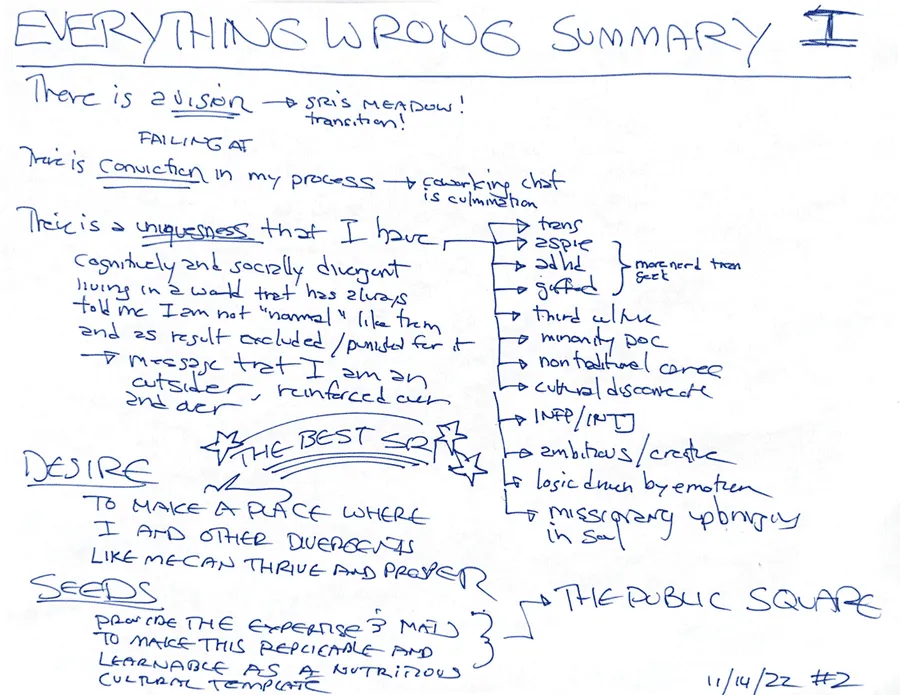 EVERYTHING WRONG SUMMARY I
There is a vision → SRI'S MEADOW!
transition!
FAILING AT
There is conviction in my process → coworking chat
is culmination
There is a uniqueness that I have
cognitively and socially divergent
living in a world that has always
told me I am not "normal" like them
and as result excluded / punished for it
→ message that I am an
outsider, reinforced over
and over
→ trans
→ aspie
→ adhd
→ gifted
more nerd than
geek
→ third culture
→ minority POC
→ nontraditional career
→ cultural disconnect
→ INFP/INTJ
→ ambitious / creative
→ logic driven by emotion
→ missionary upbringing
in
THE BEST SRI
DESIRE
TO MAKE A PLACE WHERE
I AND OTHER DIVERGENTS
LIKE ME CAN THRIVE AND PROSPER
SEEDS
PROVIDE THE EXPERTISE &
TO MAKE THIS REPLICABLE AND
LEARNABLE AS A NUTRITIOUS
CULTURAL TEMPLATE
→ THE PUBLIC SQUARE
11/14/22 #2